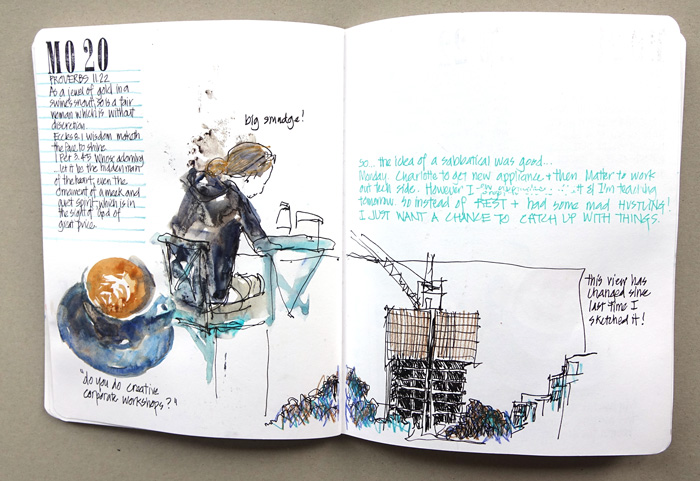 MO 20
PROVERBS 11.22
As a jewel of gold in a
swine's snout, so is a fair
woman which is without
discretion.
Eccles 8.1 Wisdom maketh
the face to shine.
1 Pet 3.4 Whose adorning
let it be the hidden man
of the heart, even the
ornament of a meek and
quiet spirit, which is in
the sight of God of
great price.
big smudge!
"do you do creative
corporate workshops?"
so... the idea of a sabbatical was good...
Monday Charlotte to get new appliance + then Matter to work
out tech side. However I & I'm teaching
tomorrow. So instead of REST + had some mad HUSTLING!
I JUST WANT A CHANCE TO CATCH UP WITH THINGS.
this view has
changed since
last time I
sketched it!